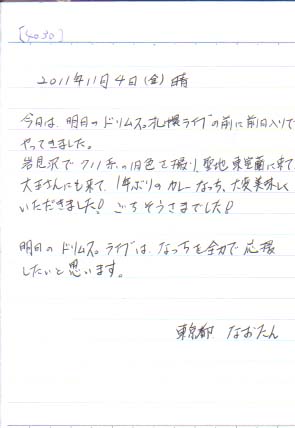 [4030]
2011年11月4日(金)晴
今日は、明日のドリムス。札幌ライブの前に前日入りで
やってきました。
岩見沢で の旧色を撮り、聖地 東室蘭に来て、
大王さんにも来て、1年ぶりのカレーなっち、大変美味しく
いただきました! ごちそうさまでした!
明日のドリムス。ライブは、なっちを全力で応援
したいと思います。
東京都 なおたん